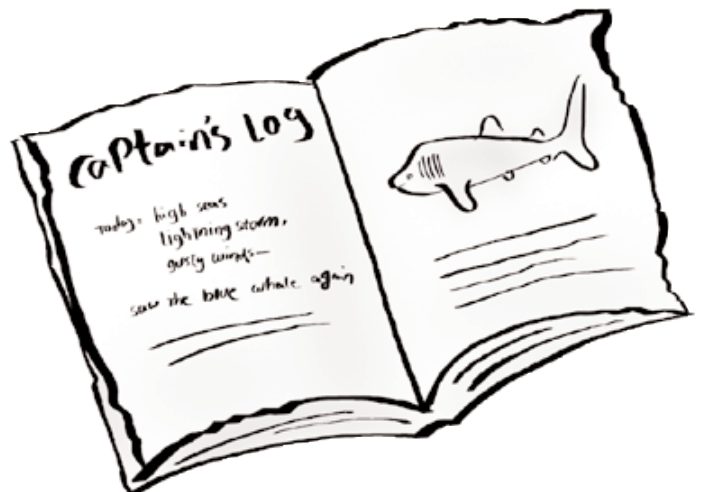 captain's log
Today: high seas
lightning storm,
gusty winds—
saw the blue whale again